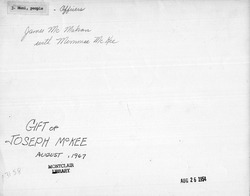 - Officers
James Mc Mahon
with Merrimac McKee
GIFT OF
JOSEPH McKEE
AUGUST, 1967
MONTCLAIR
LIBRARY
AUG 26 1954